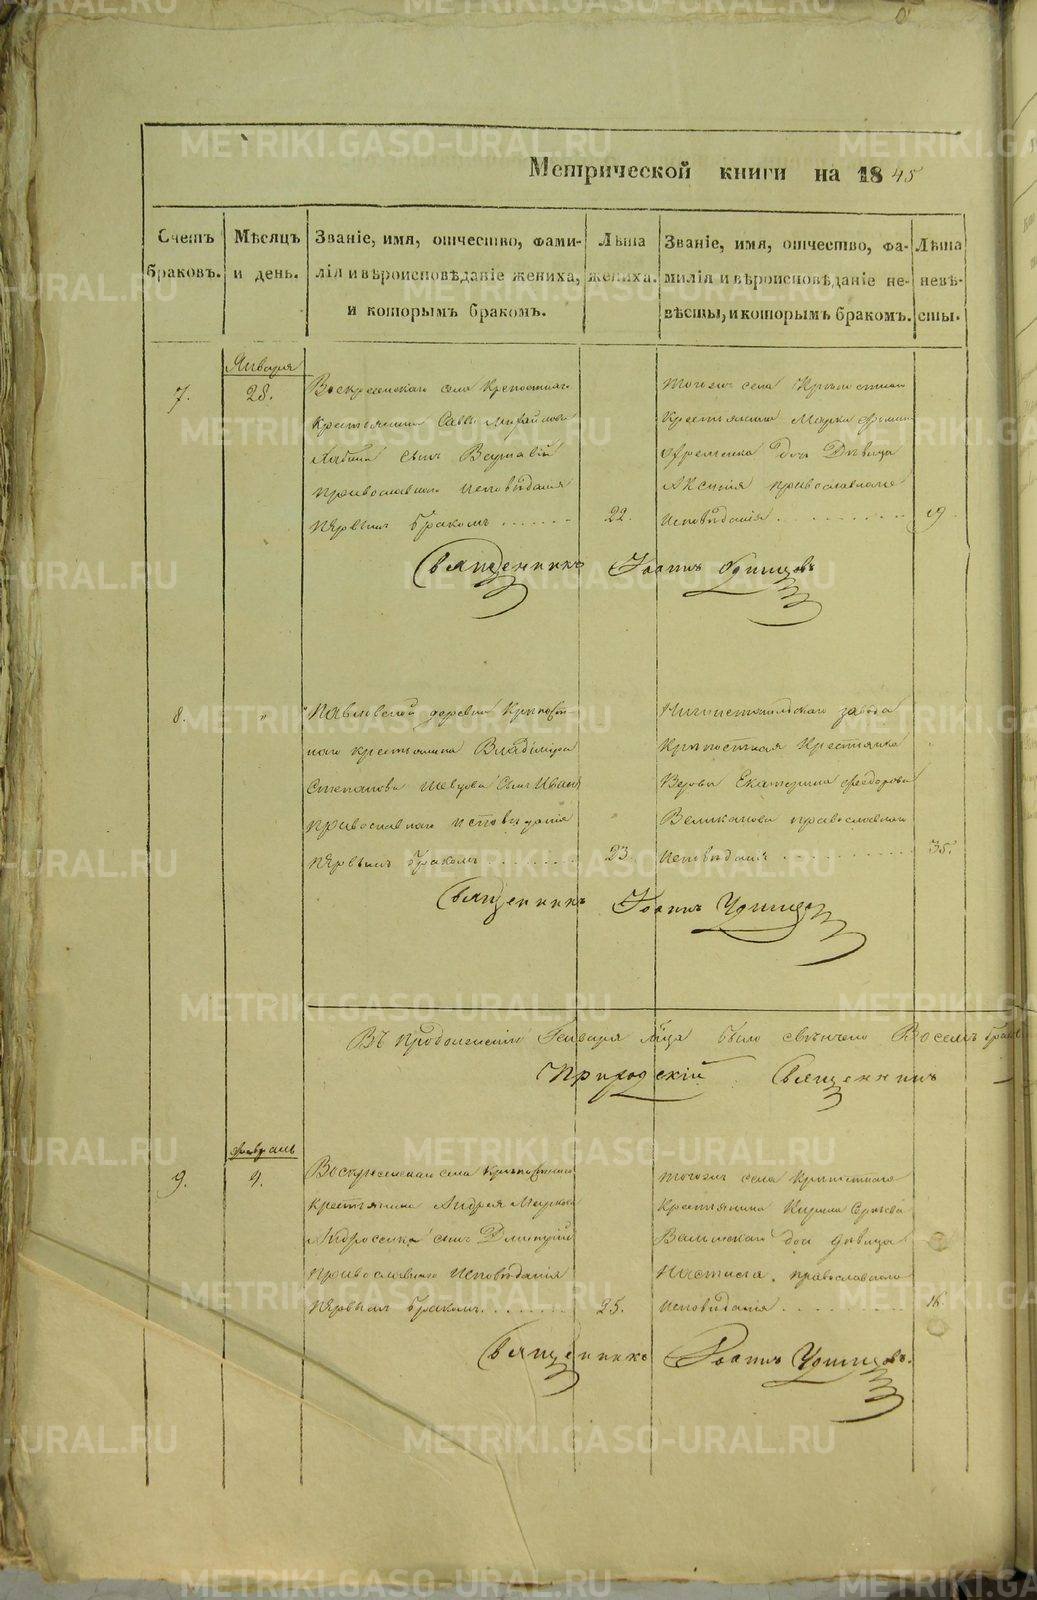 Метрической книги на 1845
Счетъ браковъ.
Мѣсяцъ и день.
Званіе, имя, отчество, фами-
лія и вѣроисповѣданіе жениха,
и которымъ бракомъ.
Лѣта жениха.
Званіе, имя, отчество, фа-
милія и вѣроисповѣданіе не-
вѣсты, и которымъ бракомъ.
Лѣта невѣ-
сты.
Января
7.
28.
Воскресенскаго села Крепостнаго
Крестьянина Саввы
сынъ
православнаго исповѣданія
первымъ бракомъ
22.
тогожъ села Крѣпостнаго
Крестьянина Марка
дочь Девица
Аксинія православнаго
исповѣданія
19.
Священникъ Іоаннъ
8.
" "
Павловской деревни Крѣпост-
наго крестьянина Владимира
Степанова Шевцова сынъ Иванъ
православнаго исповѣданія
первымъ бракомъ
23.
завода
Крѣпостная Крестьянка
Вдова Екатерина Феодорова
Великанова православнаго
исповѣданія
35.
Священникъ Іоаннъ
Въ продолженіи Генваря м-ца было свѣнчено Восемь
Приходскій Священникъ
Февраль
9.
4.
Воскресенскаго села Крѣпостнаго
Крестьянина Андрея Маркова
сынъ Димитрій
Православнаго исповѣданія
первымъ бракомъ
25.
тогожъ села Крѣпостнаго
Крестьянина Кирила
дочь девица
православнаго
исповѣданія
16.
Священникъ Іоаннъ
METRIKI.GASO-URAL.RU